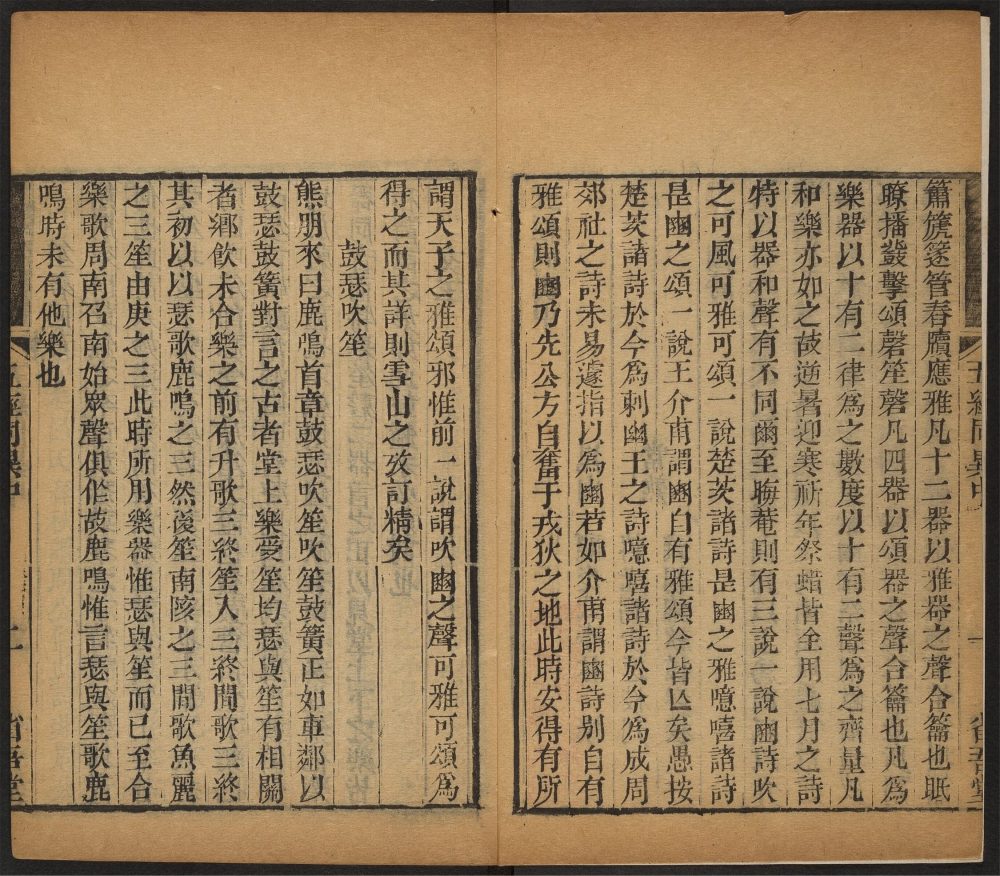 簫篪篴管舂牘應雅凡十二器以雅器之聲合籥也眡
瞭播鼗擊頌磬笙磬凡四器以頌器之聲合籥也凡為
樂器以十有二律為之數度以十有二聲為之齊量凡
和樂亦如之故逆暑迎寒祈年祭蜡皆全用七月之詩
特以器和聲有不同爾至晦菴則有三說一說豳詩吹
之可風可雅可頌一說楚茨諸詩是豳之雅噫嘻諸詩
是豳之頌一說王介甫謂豳自有雅頌今皆亾矣愚按
楚茨諸詩於今為刺幽王之詩噫嘻諸詩於今為成周
郊社之詩未易遽指以為豳若如介甫謂豳詩别自有
雅頌則豳乃先公方自奮于戎狄之地此時安得有所
五經同異中
一
省吾堂
謂天子之雅頌邪惟前一說謂吹豳之聲可雅可頌為
得之而其詳則雪山之攷訂精矣
鼓瑟吹笙
熊朋來曰鹿鳴首章鼓瑟吹笙吹笙鼓簧正如車鄰以
鼓瑟鼓簧對言之古者堂上樂受笙均瑟與笙有相關
者鄉飲未合樂之前有升歌三終笙入三終間歌三終
其初以以瑟歌鹿鳴之三然後笙南陔之三間歌魚麗
之三笙由庚之三此時所用樂器惟瑟與笙而已至合
樂歌周南召南始眾聲俱作故鹿鳴惟言瑟與笙歌鹿
鳴時未有他樂也
五經同異中
二
省吾堂